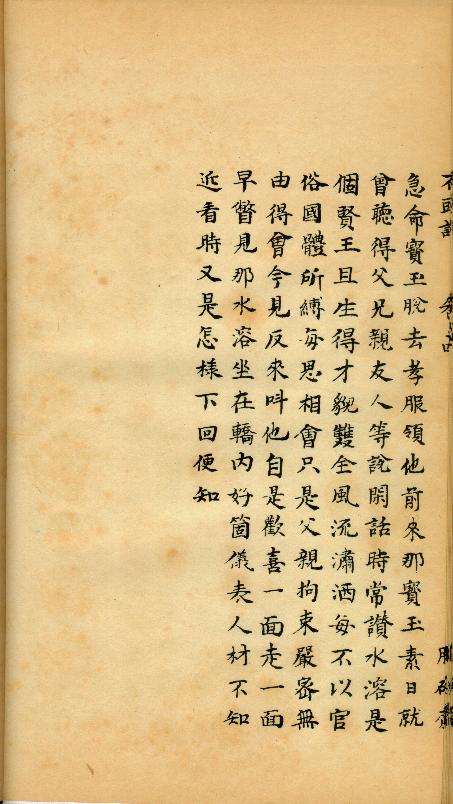 急命寳玉脫去孝服領他前來那寳玉素日就
曾聽得父兄親友人等說閑話時常讃水溶是
個賢王且生得才貌雙全風流瀟洒每不以官
俗國體所縛每思相會只是父親拘束嚴宻無
由得會今見反來呌他自是歡喜一面走一面
早瞥見那水溶坐在轎內好箇儀表人材不知
近看時又是怎樣下回便知